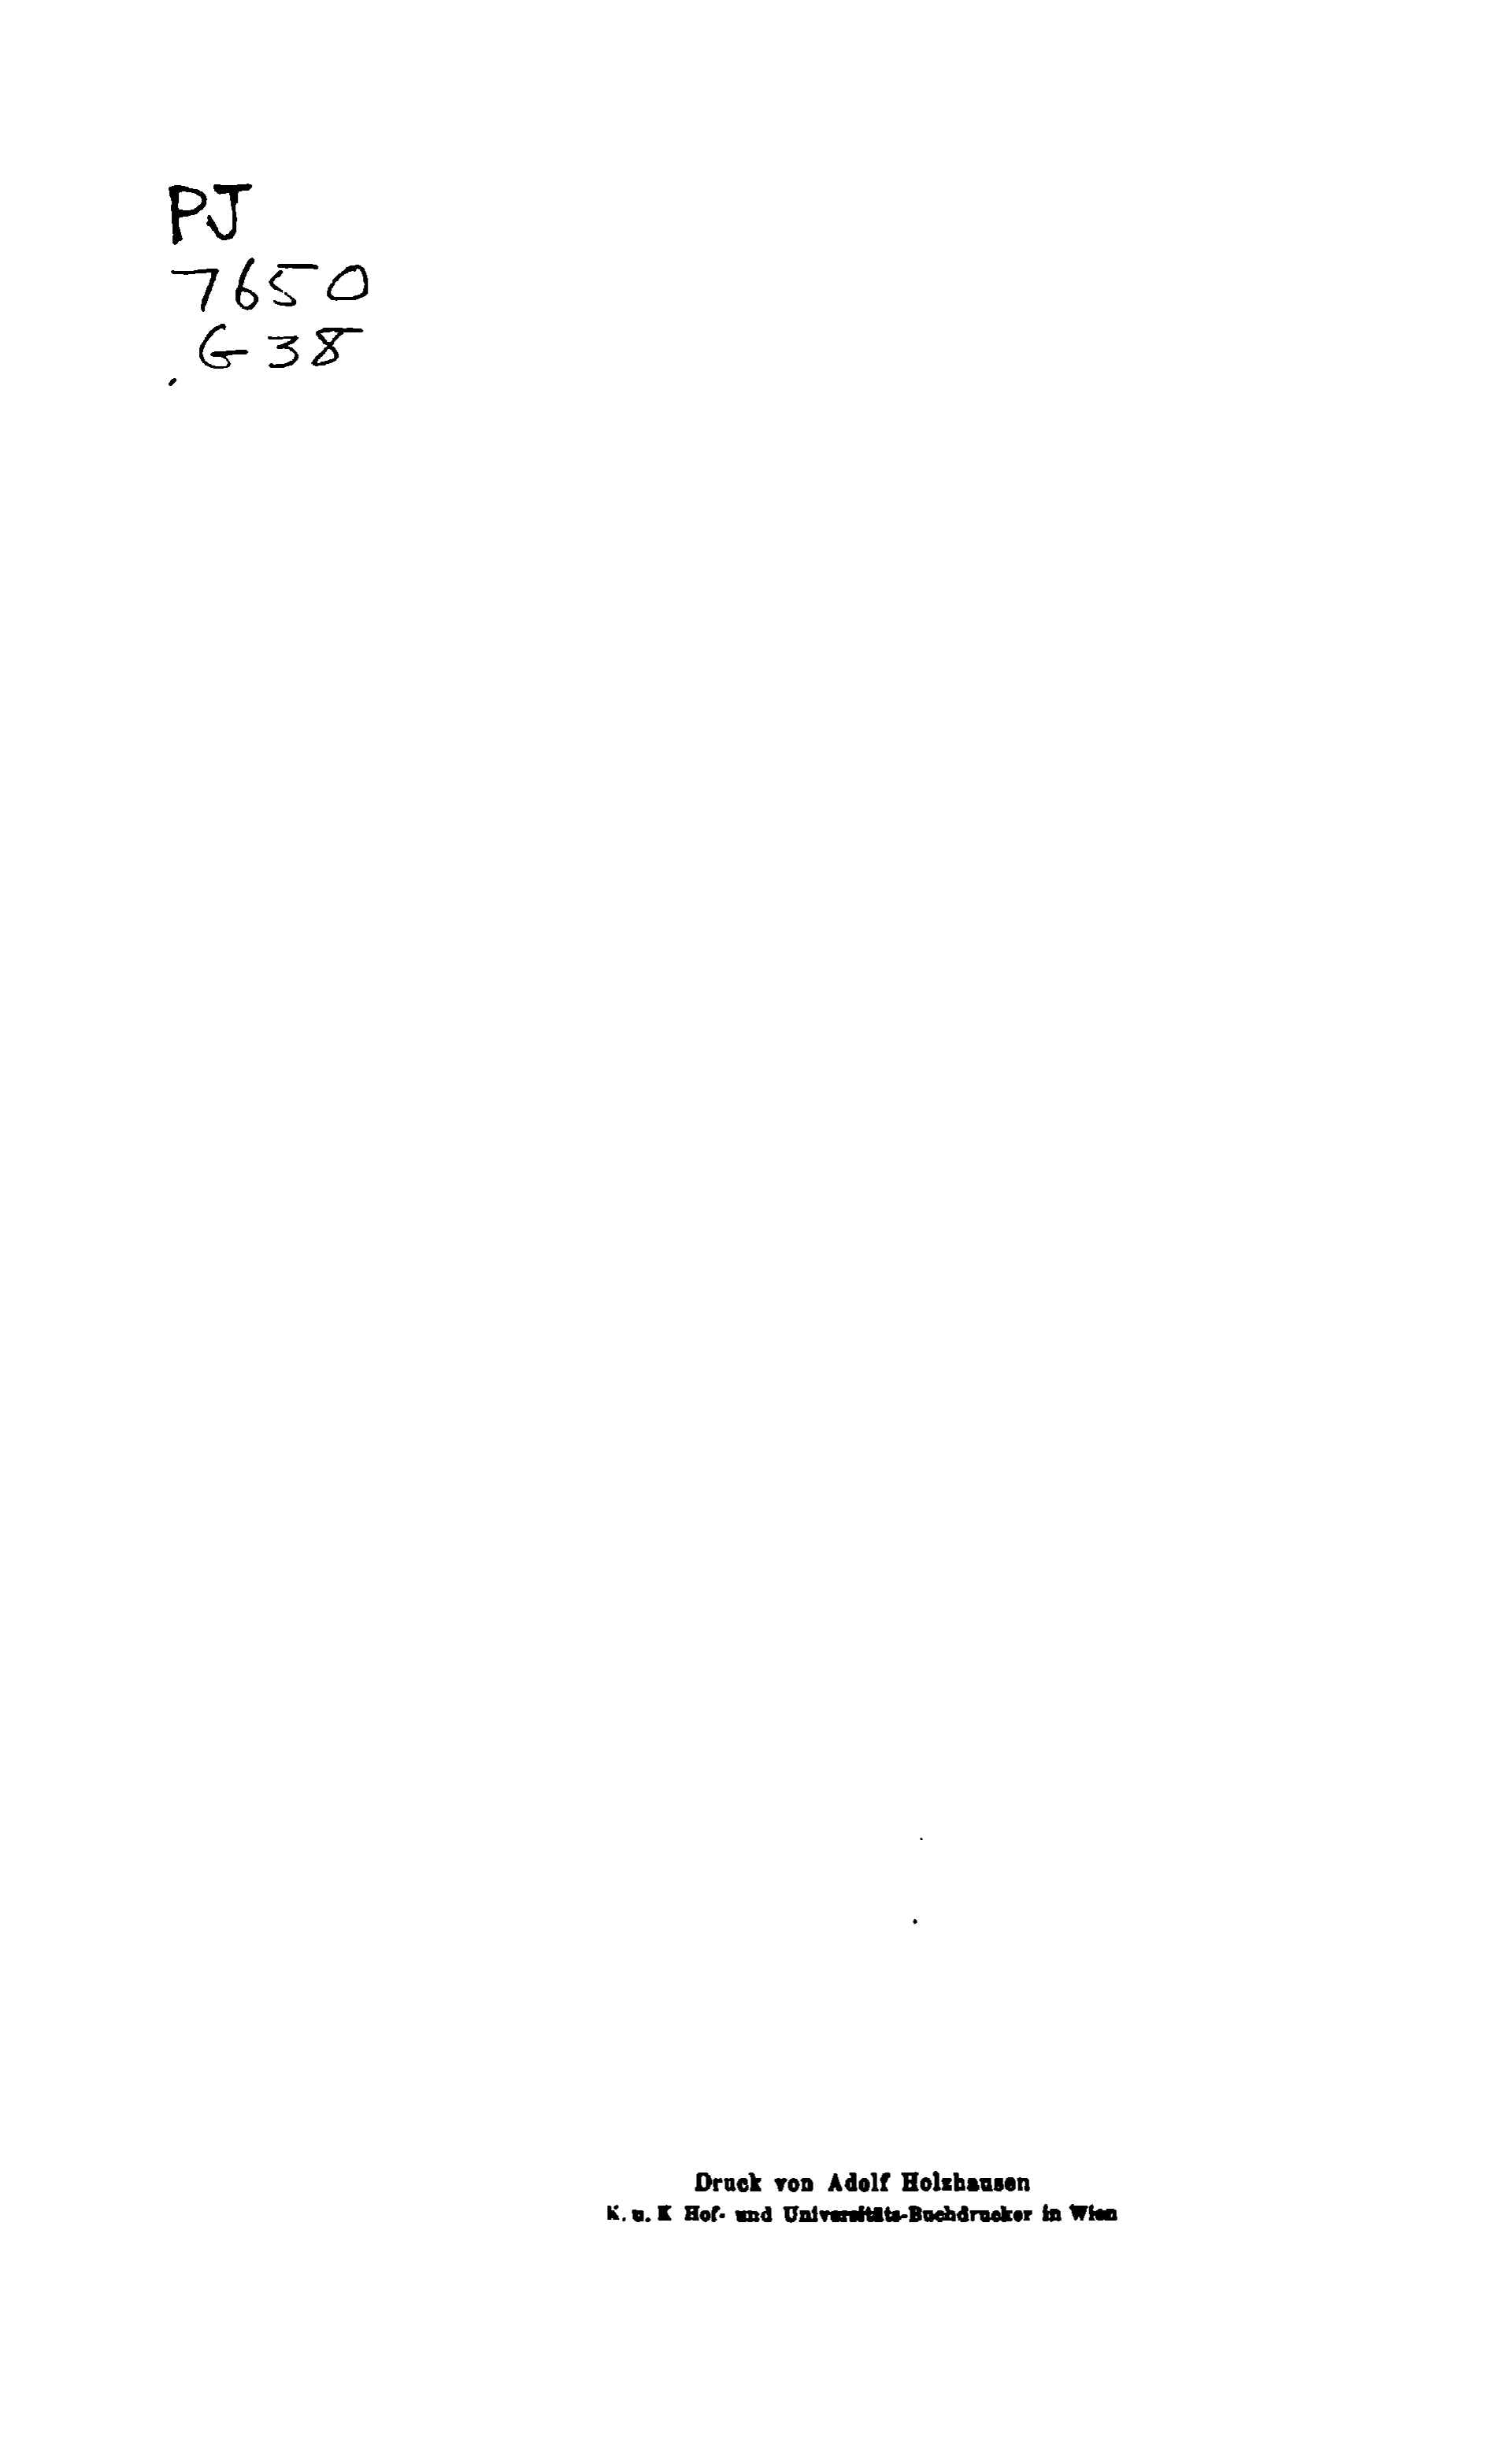 PJ
7650
.G38
Druck von Adolf Holzhausen
K. u. K Hof- und Universitäts-Buchdrucker in Wien